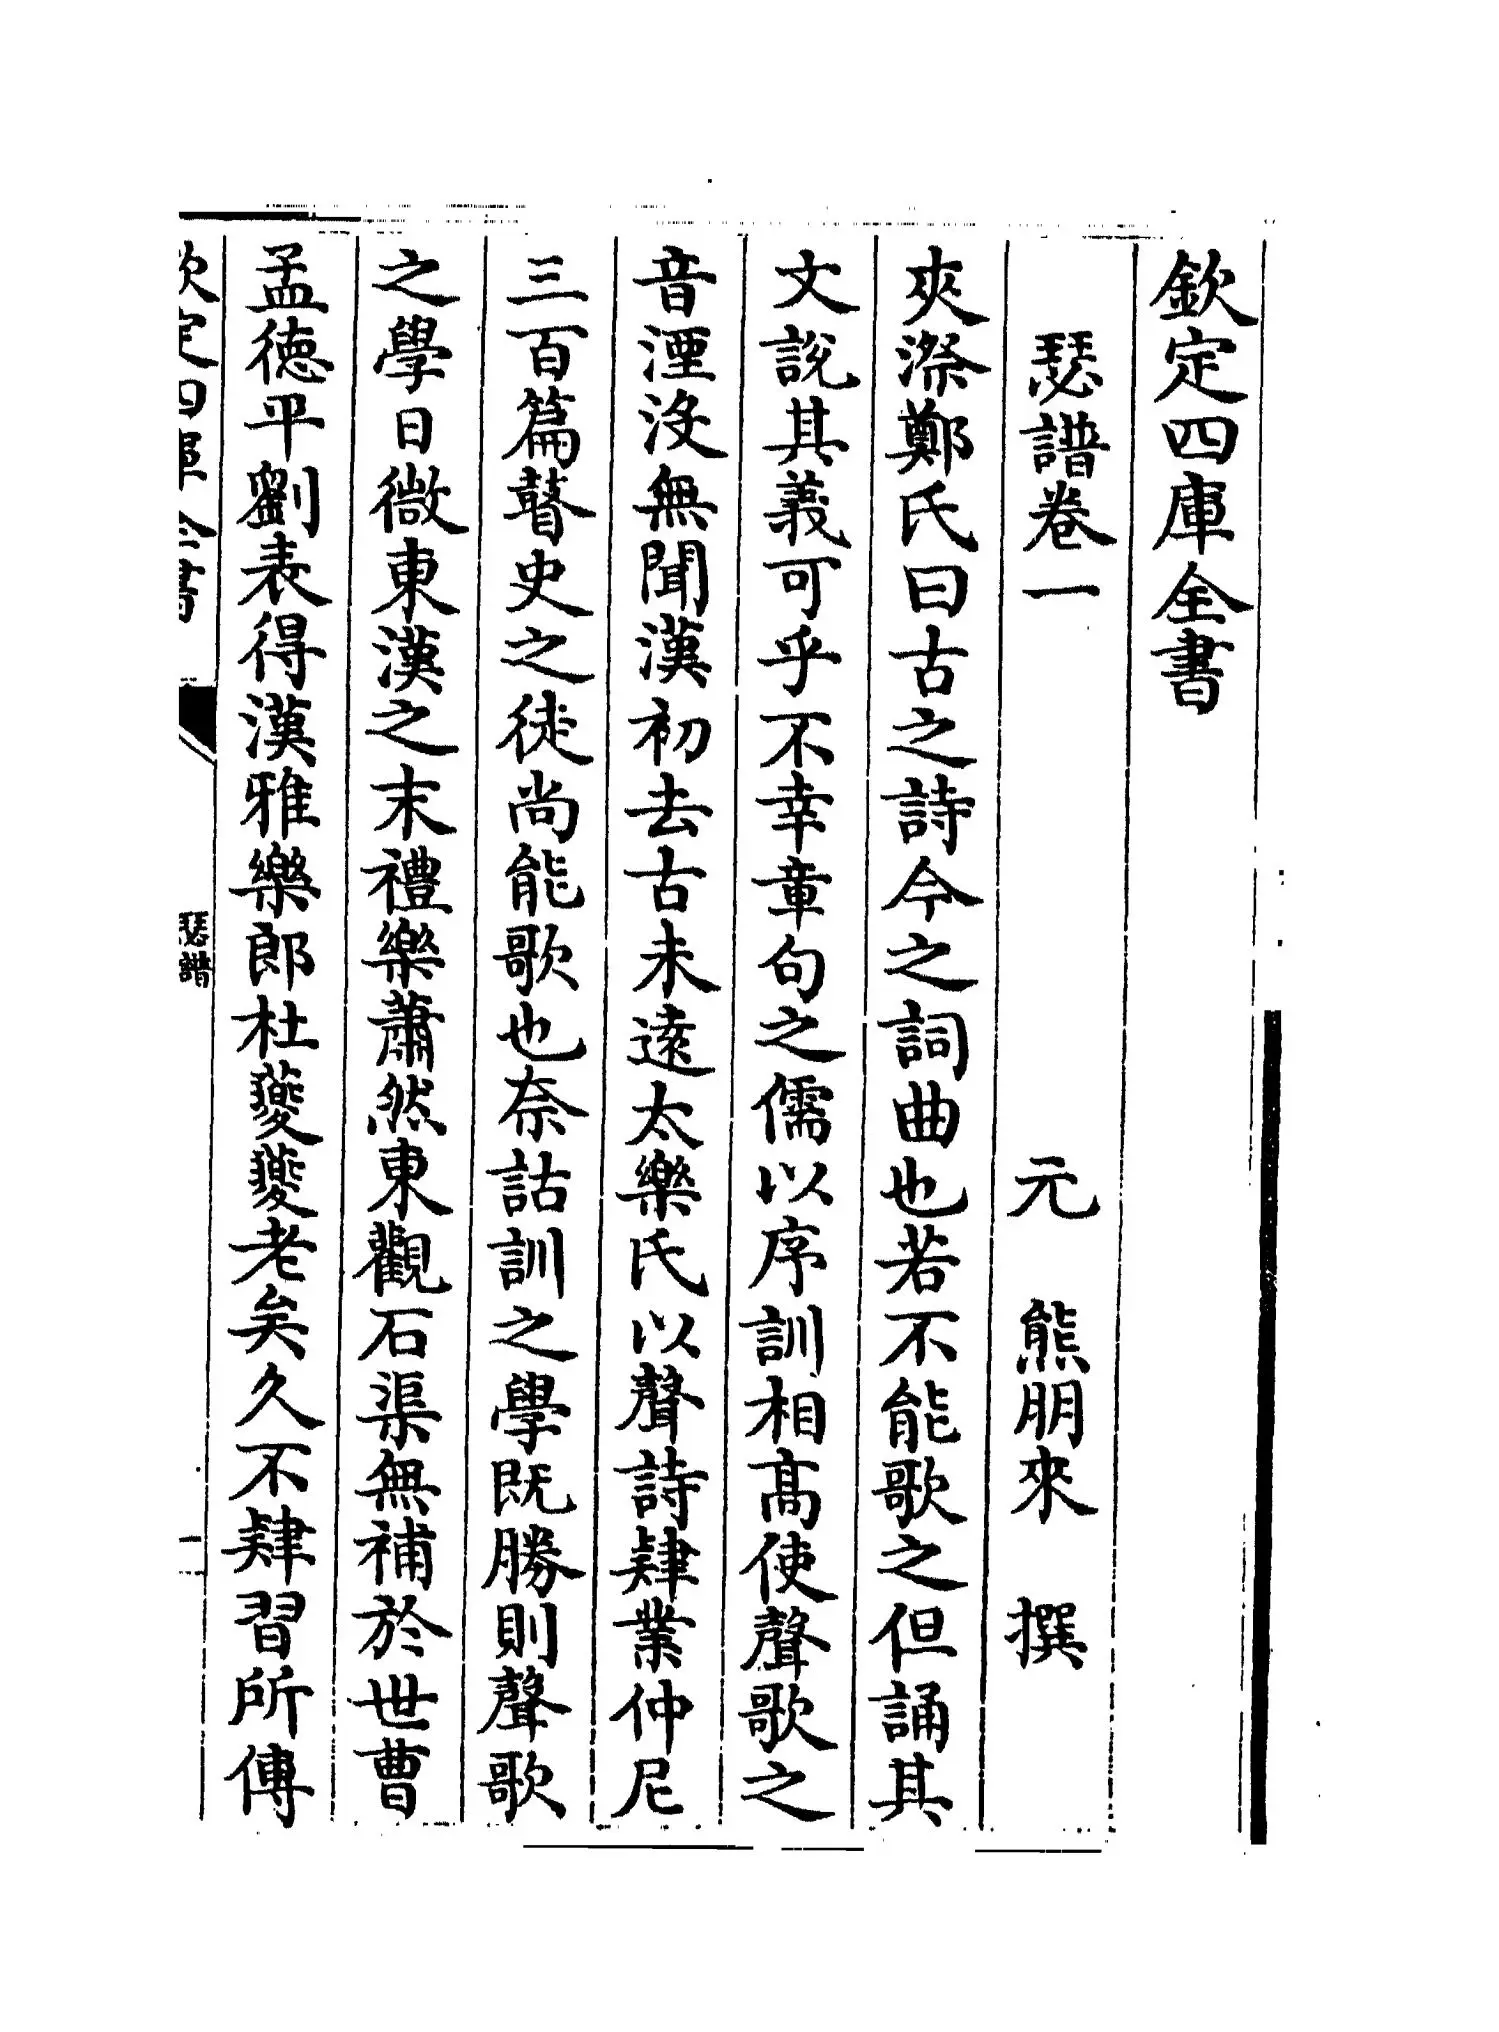 欽定四庫全書
瑟譜卷一 元 熊朋來 撰
夾漈鄭氏曰古之詩今之詞曲也若不能歌之但誦其
文說其義可乎不幸章句之儒以序訓相髙使聲歌之
音湮没無聞漢初去古未遠太樂氏以聲詩肄業仲尼
三百篇瞽史之徒尚能歌也奈詁訓之學既勝則聲歌
之學日微東漢之末禮樂蕭然東觀石渠無補於世曹
孟德平劉表得漢雅樂郎杜夔夔老矣久不肄習所傳
欽定四庫全書 瑟譜 一